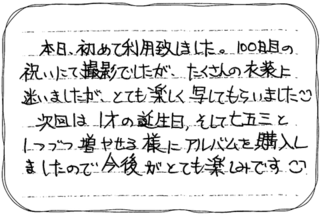 本日、初めて利用致しました。100日目の
祝いにて撮影でしたが、たくさんの衣装に
迷いましたが、とても楽しく写してもらいました☺
次回は1才の誕生日、そして七五三と
1つづつ増やせる様にアルバムを購入し
ましたので今後がとても楽しみです☺